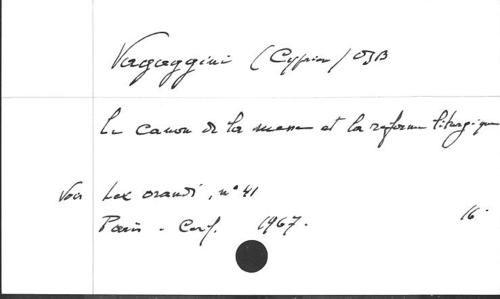 Vagaggini (Cyprien) OSB
Le canon de la messe et la réforme liturgique
Voir Lex orandi, n° 41
Paris - Cerf. 1967. 16